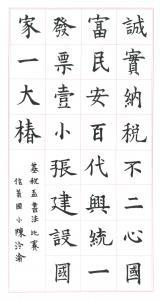 誠實納稅不二心國
富民安百代興統一
發票壹小張建設國
家一大椿
基稅盃書法比賽
信義國小陳泠渝